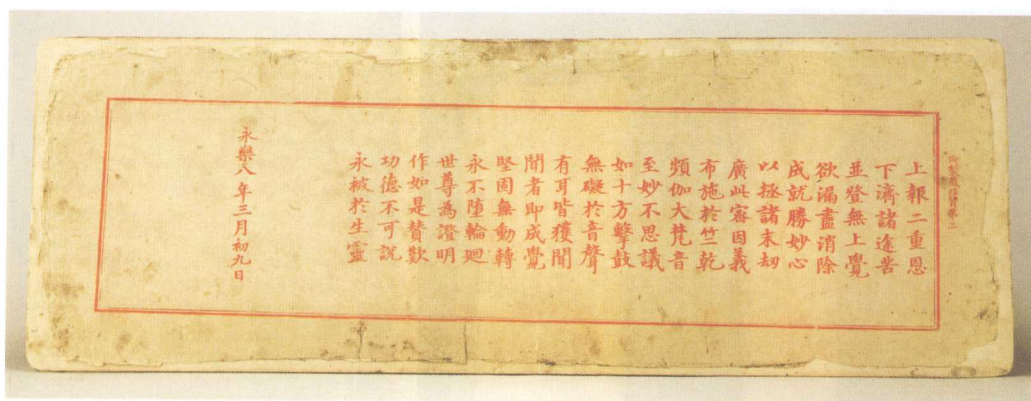 上報二重恩
下濟諸途苦
並登無上覺
欲漏盡消除
成就勝妙心
以拯諸末劫
廣此密因義
布施於竺乾
頻伽大梵音
至妙不思議
如十方擊鼓
無礙於音聲
有耳皆獲聞
聞者即成覺
堅固無動轉
永不墮輪廻
世尊為證明
作如是賛歎
功德不可說
永被於生靈
永樂八年三月初九日